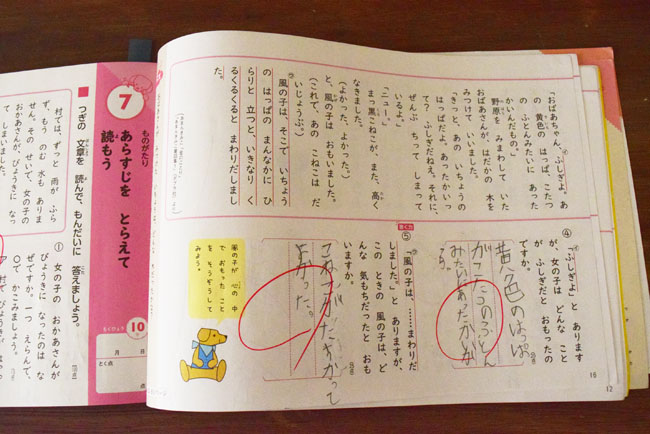 「おばあちゃん、ふしぎよ。あ
の 黄色の はっぱ、こたつ
の ふとんみたいに あった
かいんだもの。」
野原を みまわして いた
おばあさんが、はだかの 木を
みつけて いいました。
「きっと、あの いちょうの
はっぱだよ。あったかいっ
て？ ふしぎだねえ。それに、
ぜんぶ ちって しまって
いるよ。」
「ニュー。」
まっ黒こねこが、また、高く
なきました。
（よかった、よかった。）
と、風の子は おもいました。
（これで、あの こねこは だ
いじょうぶ。）
風の子は、そこで いちょう
の はっぱの まんなかに ひ
らりと 立つと、いきなり く
るくるくると まわりだしまし
た。
④
「ふしぎよ」と あります
が、女の子は どんな こと
が ふしぎだと おもったの
ですか。
黄色のはっぱ
がこたつのふとん
みたいであたたかいから
書く力
⑤
「風の子は、……まわりだ
しました。」と ありますが、
この ときの 風の子は、ど
んな 気もちだったと おも
いますか。
こねこがたすかって
よかった。
風の子が 心の 中
で おもった こと
を そうぞうして
みよう。
10
12
7
ものがたり
あらすじを とらえて
読もう
もくひょう 10 分
月 日
とく点
点
つぎの 文章を 読んで、もんだいに 答えましょう。
村では、ずっと 雨が ふら
ず、もう のむ 水も ありま
せん。その せいで、女の子の
おかあさんが、びょうきに なっ
て しまいました。
① 女の子の おかあさんが
びょうきに なったのは な
ぜですか。一つ えらんで、
○で かこみましょう。